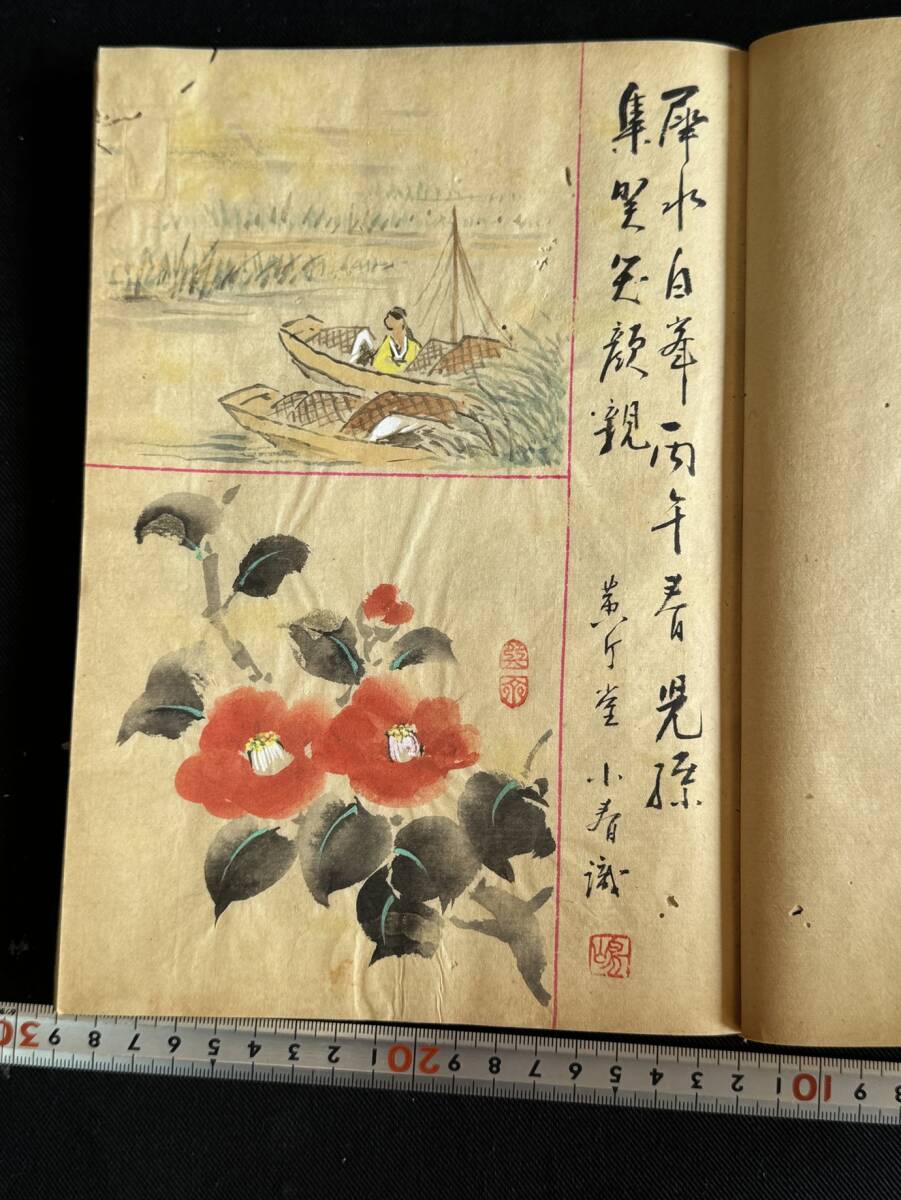 犀水白峯丙午春児孫
集咲笑顔親
黄斤堂 小春識
30 9 8 7 6 5 4 3 2 1 20 9 8 7 6 5 4 3 2 1 10 9 8